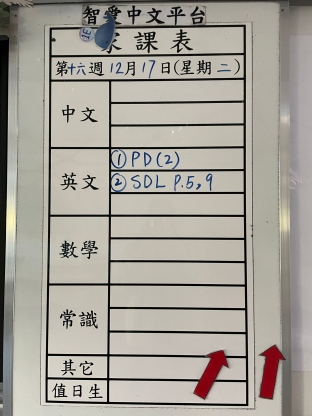 智愛中文平台
家課表
第十六週12月17日(星期二)
中文
英文
① PD(2)
② SDL P.5,9
數學
常識
其它
值日生